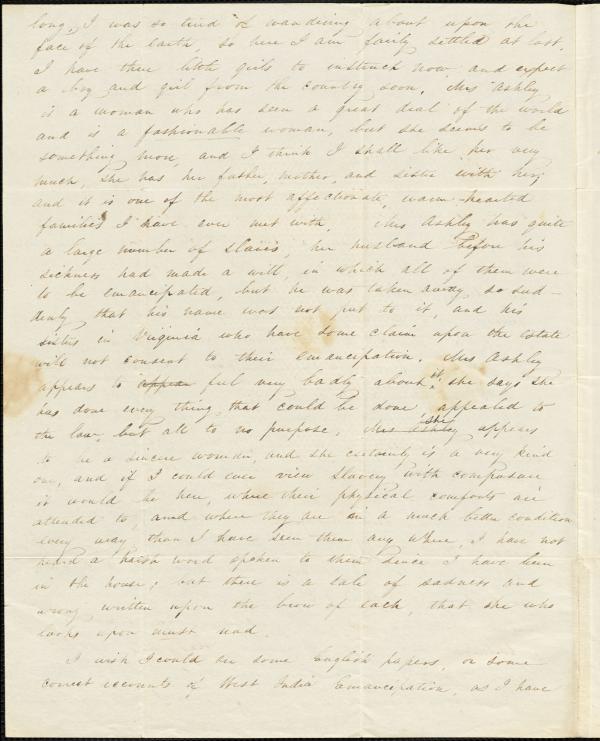 long, I was so tired of wandering about upon the
face of the earth, so here I am fairly settled at last.
I have three little girls to instruct now and expect
a boy and girl from the country soon. Mrs Ashley
is a woman who has seen a great deal of the world
and is a fashionable woman, but she seems to be
something more, and I think I shall like her very
much, she has her father, mother, and sister with her,
and it is one of the most affectionate, warm-hearted
families I have ever met with. Mrs Ashley has quite
a large number of slaves, her husband before his
sickness had made a will, in which all of them were
to be emancipated, but he was taken away so sud-
denly that his name was not put to it, and his
sisters in Virginia who have some claim upon the estate
will not consent to their emancipation. Mrs Ashley
appears to appear feel very badly about it, she says she
has done every thing that could be done, appealed to
the law, but all to no purpose. Mrs Ashley she appears
to be a sincere woman, and she certainly is a very kind
one, and if I could ever view Slavery with composure
it would be here, where their physical comforts are
attended to, and where they are in a much better condition
every way than I have seen them any where, I have not
heard a harsh word spoken to them since I have been
in the house; but there is a tale of sadness and
wrong written upon the brow of each, that she who
looks upon must read.
I wish I could see some English papers, or some
correct accounts of West India Emancipation, as I have